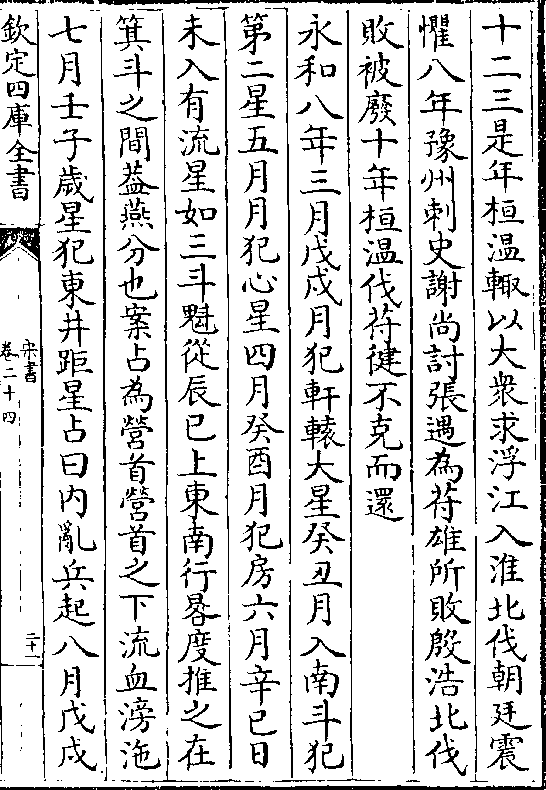 十二三是年桓温輙以大衆求浮江入淮北伐朝廷震
懼八年豫州刺史謝尚討張遇為苻雄所敗殷浩北伐
敗被廢十年桓温伐苻健不克而還
永和八年三月戊戌月犯軒轅大星癸丑月入南斗犯
第二星五月月犯心星四月癸酉月犯房六月辛巳日
未入有流星如三斗魁從辰巳上東南行晷度推之在
箕斗之間葢燕分也案占為營首營首之下流血滂沲
七月壬子歲星犯東井距星占曰内亂兵起八月戊戌
欽定四庫全書
宋書
卷二十四
二十一